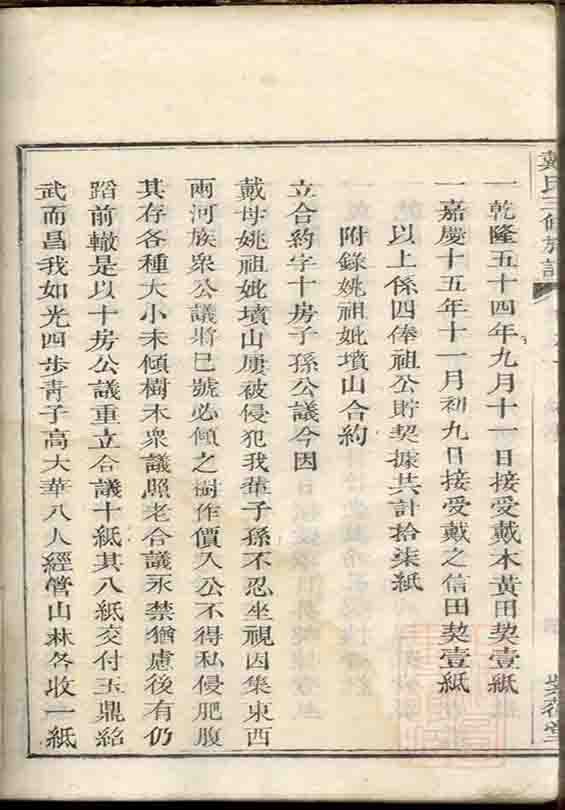 戴氏三修族譜
一乾隆五十四年九月十一日接受戴木黃田契壹紙
一嘉慶十五年十一月初九日接受戴之信田契壹紙
以上係四俸祖公貯契據共計拾柒紙
附錄姚祖妣墳山合約
立合約字十房子孫公議今因
戴母姚祖妣墳山屢被侵犯我輩子孫不忍坐視因集東西
兩河族眾公議將已號必傾之樹作價入公不得私侵肥腹
其存各種大小未傾樹木眾議照老合議永禁猶慮後有仍
蹈前轍是以十房公議重立合議十紙其八紙交付玉鼎紹
武而昌我如光四步靑子高大華八人經管山林各收一紙